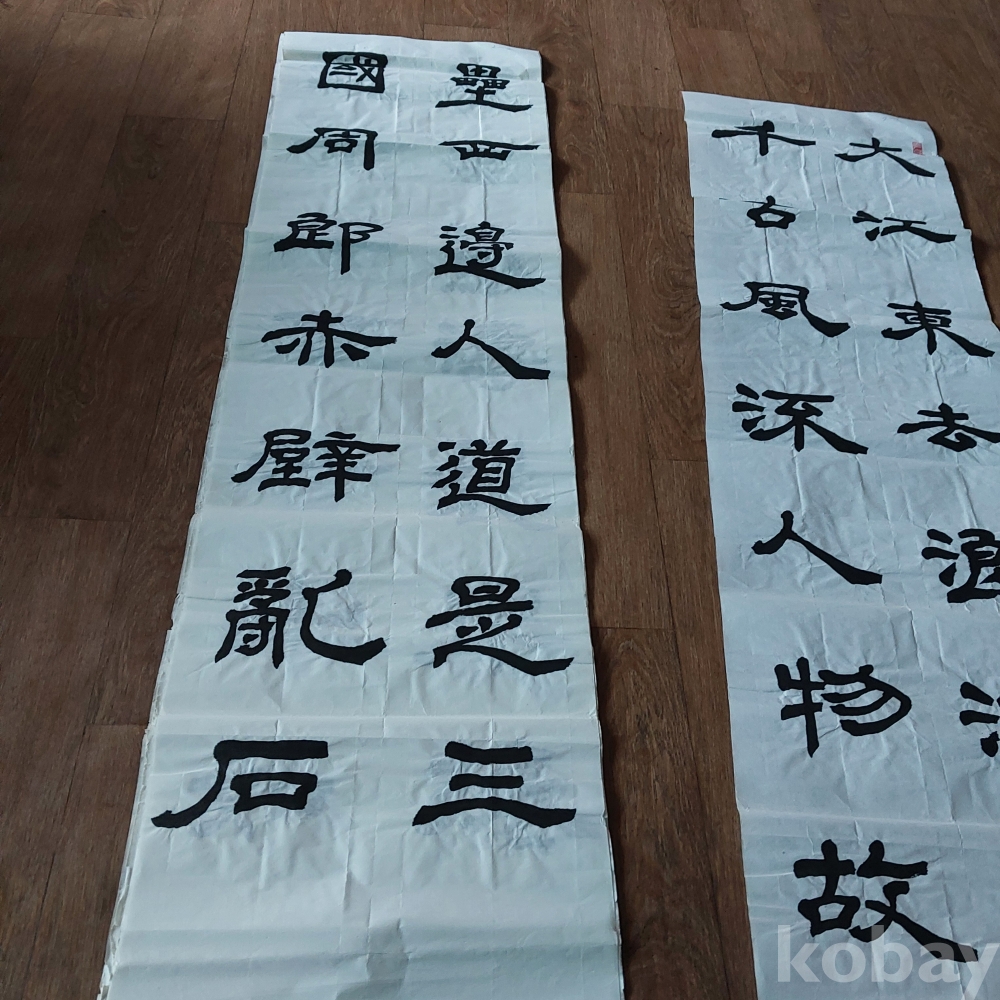 大江東去浪
千古風流人物故
壘西邊人道是三
國周郎赤壁亂石
kobay